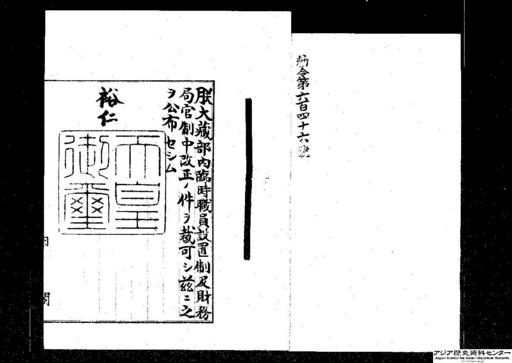 勅令第六百四十六號
朕大藏部內臨時職員設置制及財務
局官制中改正ノ件ヲ裁可シ茲ニ之
ヲ公布セシム
裕仁
天皇御璽
內
閣
アジア歴史資料センター
Japan Center for Asian Historical Records